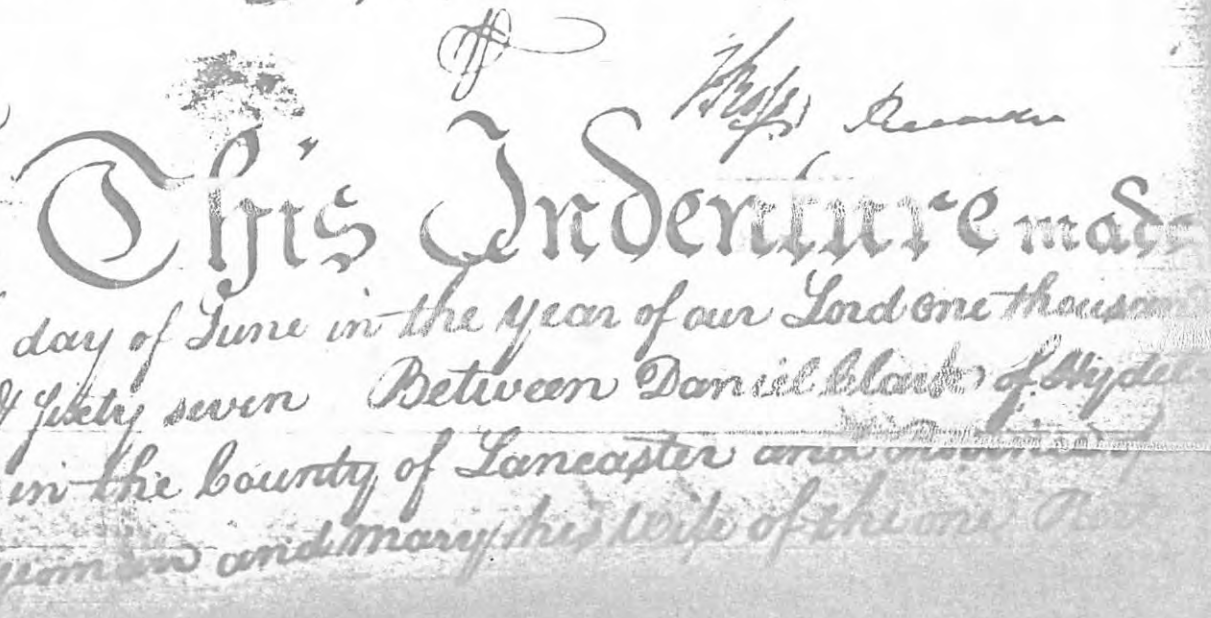 This Indenture made
day of June in the year of our Lord one thousand
sixty seven Between Daniel Clark of
in the County of Lancaster and
and Mary his Wife of the one